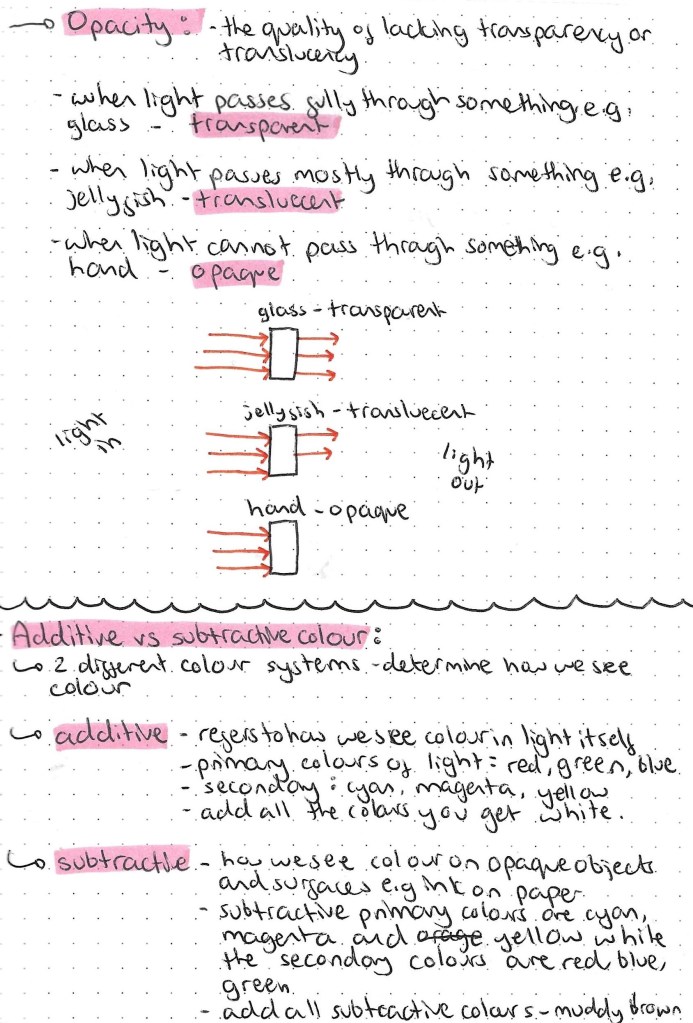 Opacity: - the quality of lacking transparency or
translucency
- when light passes fully through something e.g.
glass - transparent
- when light passes mostly through something e.g.
jellyfish - transluecent
- when light cannot pass through something e.g.
hand - opaque
glass - transparent
jellyfish - transluecent
light
in
light
out
hand - opaque
Additive vs subtractive colour:
2 different colour systems - determine how we see
colour
additive - refers to how we see colour in light itself
- primary colours of light: red, green, blue
- secondary: cyan, magenta, yellow
- add all the colours you get white.
subtractive - how we see colour on opaque objects
and surfaces e.g ink on paper
- subtractive primary colours are cyan,
magenta and orage yellow while
the secondary colours are red, blue,
green
- add all subtractive colours - muddy brown